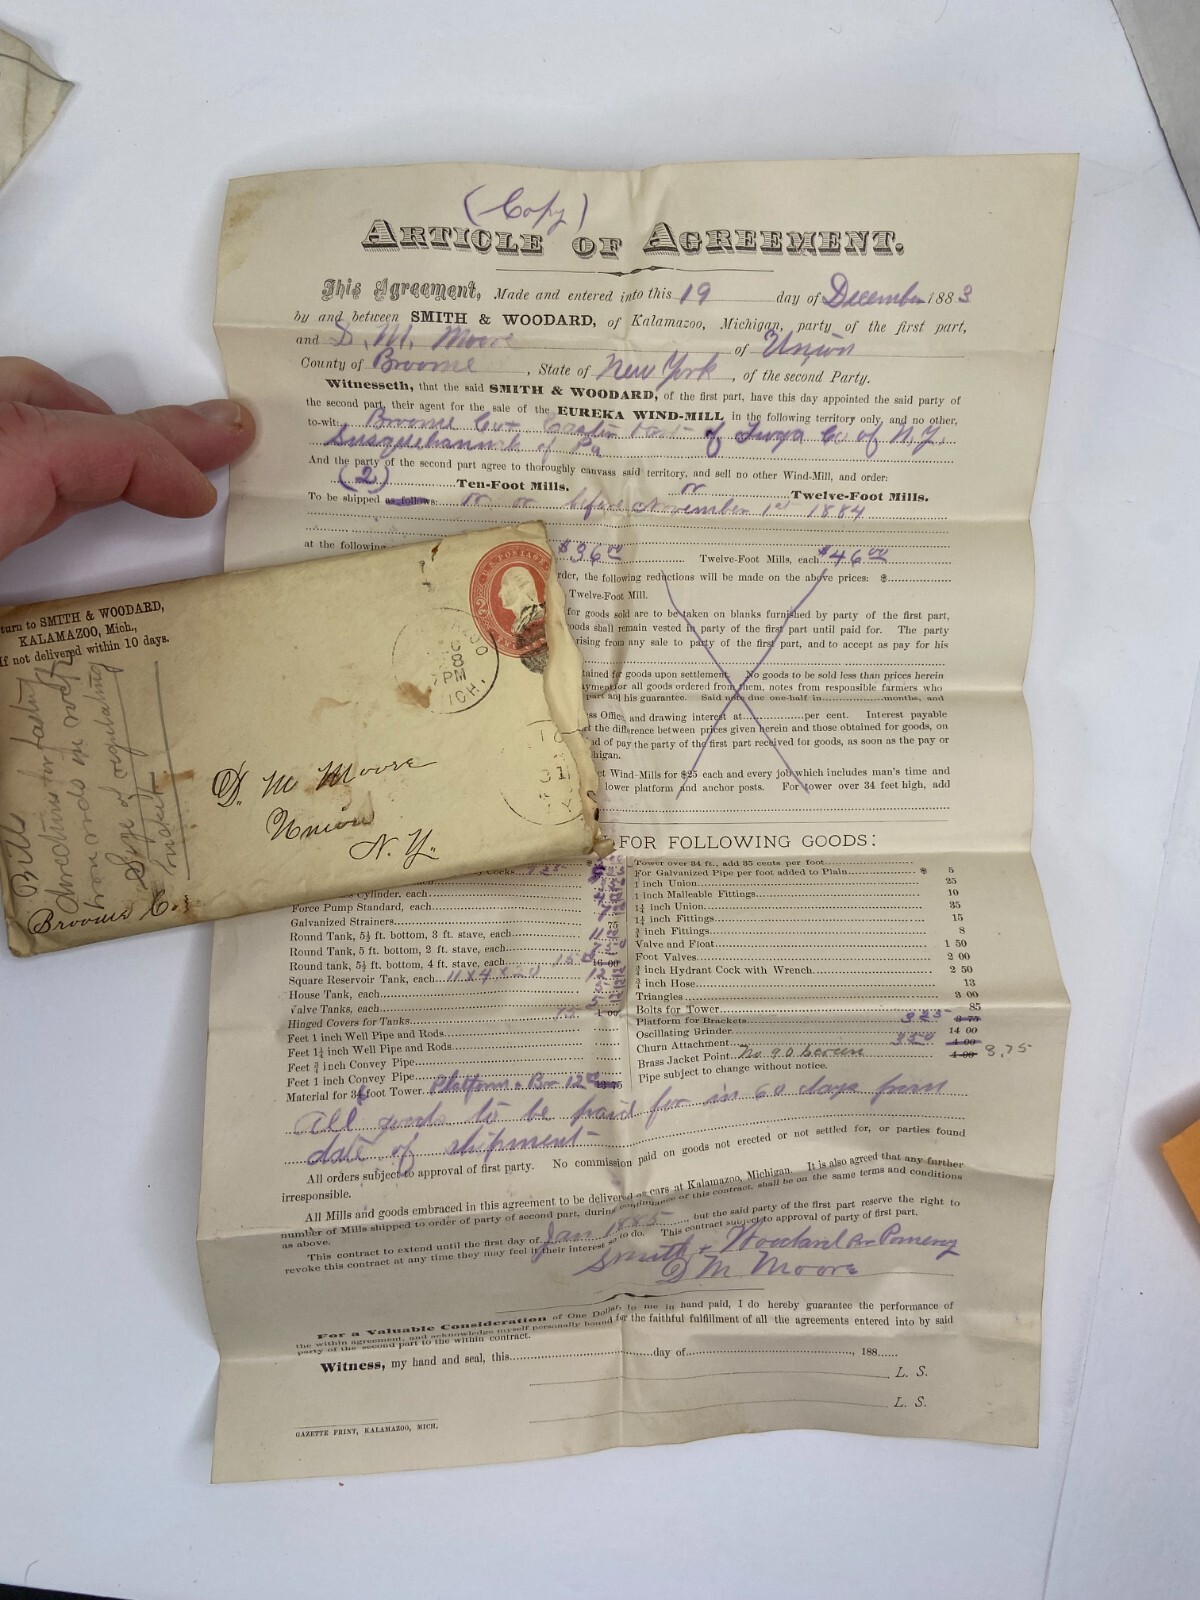 (Copy)
ARTICLE OF AGREEMENT.
This Agreement, Made and entered into this 19 day of December 1883
by and between SMITH & WOODARD, of Kalamazoo, Michigan, party of the first part,
and D. M. Moore of Union
County of Broome, State of New York, of the second Party.
Witnesseth, that the said SMITH & WOODARD, of the first part, have this day appointed the said party of
the second part, their agent for the sale of the EUREKA WIND-MILL in the following territory only, and no other,
to-wit: Broome Co. Eastern Part of Tioga Co of N. Y.
Susquehannah of Pa
And the party of the second part agree to thoroughly canvass said territory, and sell no other Wind-Mill, and order:
(2) Ten-Foot Mills. or Twelve-Foot Mills.
To be shipped as follows: on or before November 1st 1884
at the following $36.00 Twelve-Foot Mills, each $46.00
rder, the following reductions will be made on the above prices: $
Twelve-Foot Mill.
for goods sold are to be taken on blanks furnished by party of the first part,
oods shall remain vested in party of the first part until paid for. The party
rising from any sale to party of the first part, and to accept as pay for his
tained for goods upon settlement. No goods to be sold less than prices herein
yment for all goods ordered from them, notes from responsible farmers who
part and his guarantee. Said note due one-half in months, and
ss Office, and drawing interest at per cent. Interest payable
the difference between prices given herein and those obtained for goods, on
nd of pay the party of the first part received for goods, as soon as the pay or
higan.
et Wind-Mills for $25 each and every job which includes man's time and
lower platform and anchor posts. For tower over 34 feet high, add
turn to SMITH & WOODARD,
KALAMAZOO, Mich.,
If not delivered within 10 days.
U.S. POSTAGE
8 PM
ICH.
D. M Moore
Union
N. Y.
Broome Co.
Bills
directions for fasting
iron rods in wood
Size of regulating
bucket
FOR FOLLOWING GOODS:
Cocks
Cylinder, each
Force Pump Standard, each
Galvanized Strainers
Round Tank, 5½ ft. bottom, 3 ft. stave, each
Round Tank, 5 ft. bottom, 2 ft. stave, each
Round tank, 5½ ft. bottom, 4 ft. stave, each 16 00
Square Reservoir Tank, each 11 x 4 x 20
House Tank, each
Valve Tanks, each
Hinged Covers for Tanks 75 1 00
Feet 1 inch Well Pipe and Rods
Feet 1¼ inch Well Pipe and Rods
Feet ¾ inch Convey Pipe
Feet 1 inch Convey Pipe
Material for 36 foot Tower Platform & Br 12
Tower over 34 ft., add 35 cents per foot
For Galvanized Pipe per foot added to Plain $ 5
1 inch Union 25
1 inch Malleable Fittings 10
1¼ inch Union 35
1¼ inch Fittings 15
¾ inch Fittings 8
Valve and Float 1 50
Foot Valves 2 00
¾ inch Hydrant Cock with Wrench 2 50
¾ inch Hose 13
Triangles 3 00
Bolts for Tower 85
Platform for Brackets 3 25 3 75
Oscillating Grinder 14 00
Churn Attachment 3 50 4 00
Brass Jacket Point No 90 4 00 3.75
Pipe subject to change without notice.
All goods to be paid for in 60 days from
date of shipment
All orders subject to approval of first party. No commission paid on goods not erected or not settled for, or parties found
irresponsible.
All Mills and goods embraced in this agreement to be delivered on cars at Kalamazoo, Michigan. It is also agreed that any further
number of Mills shipped to order of party of second part, during continuance of this contract, shall be on the same terms and conditions
as above.
This contract to extend until the first day of Jan 1885, but the said party of the first part reserve the right to
revoke this contract at any time they may feel it their interest so to do. This contract subject to approval of party of first part.
Smith & Woodard Per Pomeroy
D M Moore
For a Valuable Consideration of One Dollar, to me in hand paid, I do hereby guarantee the performance of
the within agreement, and acknowledge myself personally bound for the faithful fulfillment of all the agreements entered into by said
party of the second part to the within contract.
Witness, my hand and seal, this day of , 188
L. S.
L. S.
GAZETTE PRINT, KALAMAZOO, MICH.